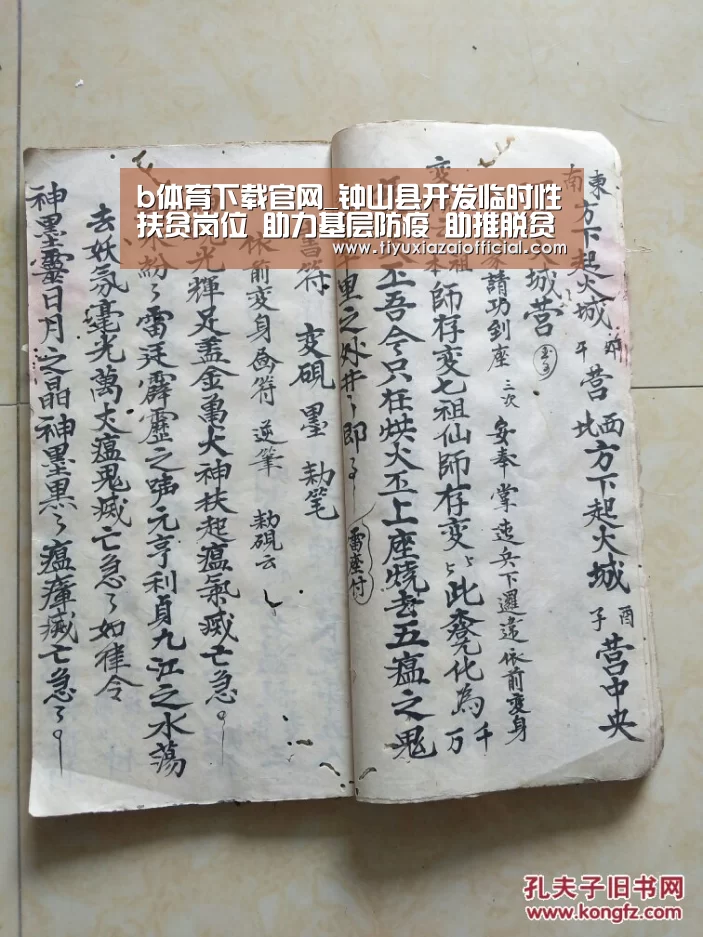 b体育下载官网_钟山县开发临时性
扶贫岗位 助力基层防疫 助推脱贫
www.tiyuxiazaiofficial.com
東方下起火城 营 西方下起火城 酉
南 午 北 子 营中央
火城营
請功到座 三次 安奉 掌 速兵下邏違 依前变身
变 祖師存変七祖仙師存変 此 化為 千万
丕吾今只在烘火丕上座燒 五瘟之鬼
里之外井 即
雷座付
書符 变硯 墨 勅笔
依前变身畫符 逆筆 勅硯云
光輝足盖金勇火神扶起瘟氣滅亡急
水紛 雷廷霹靂之 元亨利貞九江之水蕩
去妖氛毫光萬丈瘟鬼滅亡急 如律令
神墨靈日月之晶神墨黑 瘟 滅亡急
孔夫子旧书网
www.kongfz.com